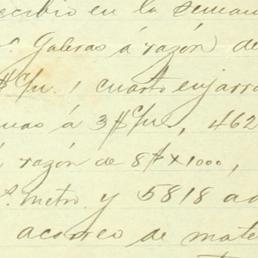 recibio en la seman
s Galeras á razón de
$ c/u. 1 cuarto enjarra
nas á 3 $ c/u, 462
razón de 8 $ x 1000,
metro y 5818 ad
acarreo de mate